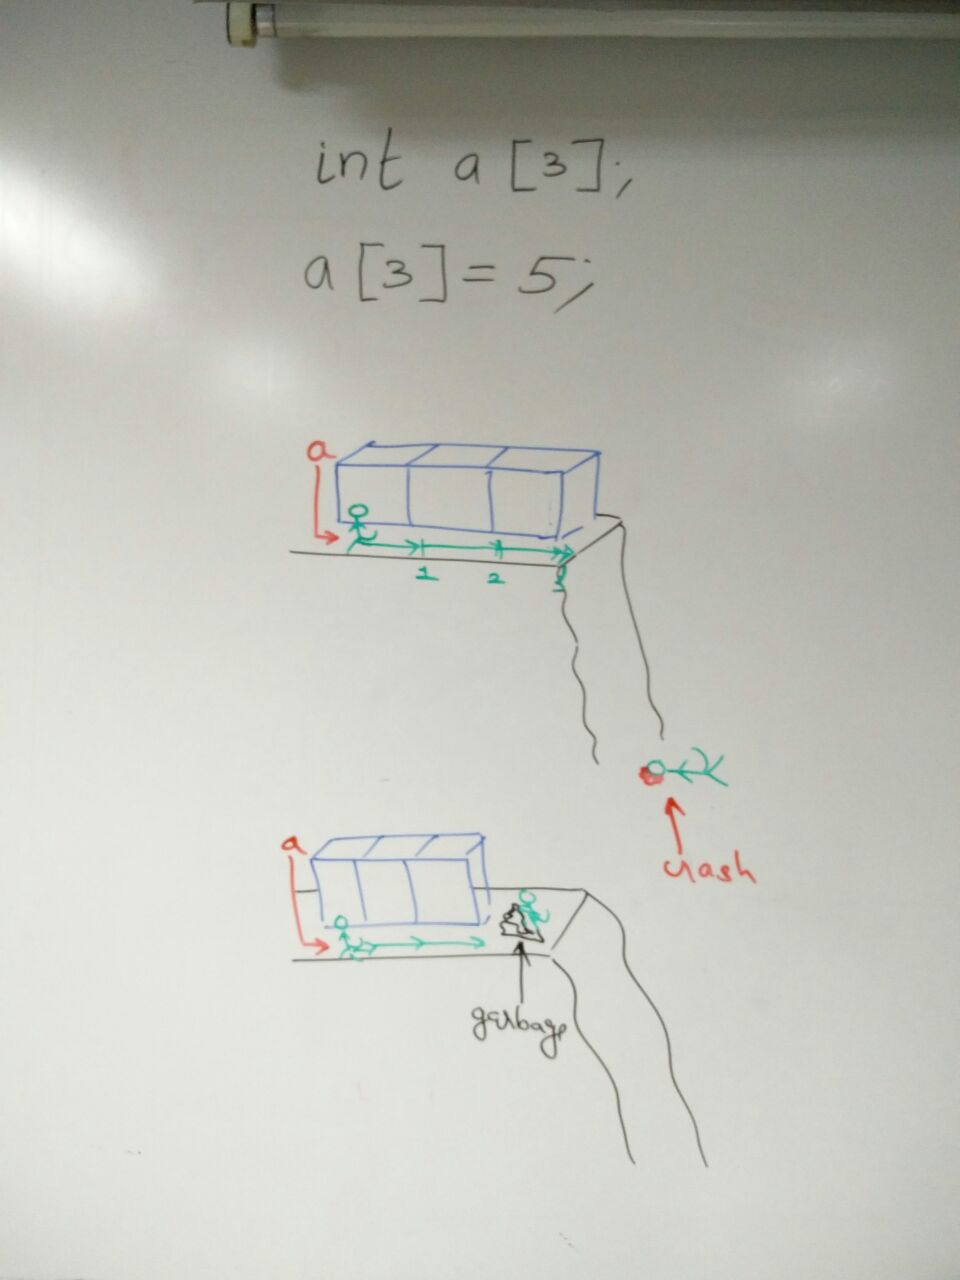 int a [3];
a [3] = 5;
a
1 2 3
crash
a
garbage